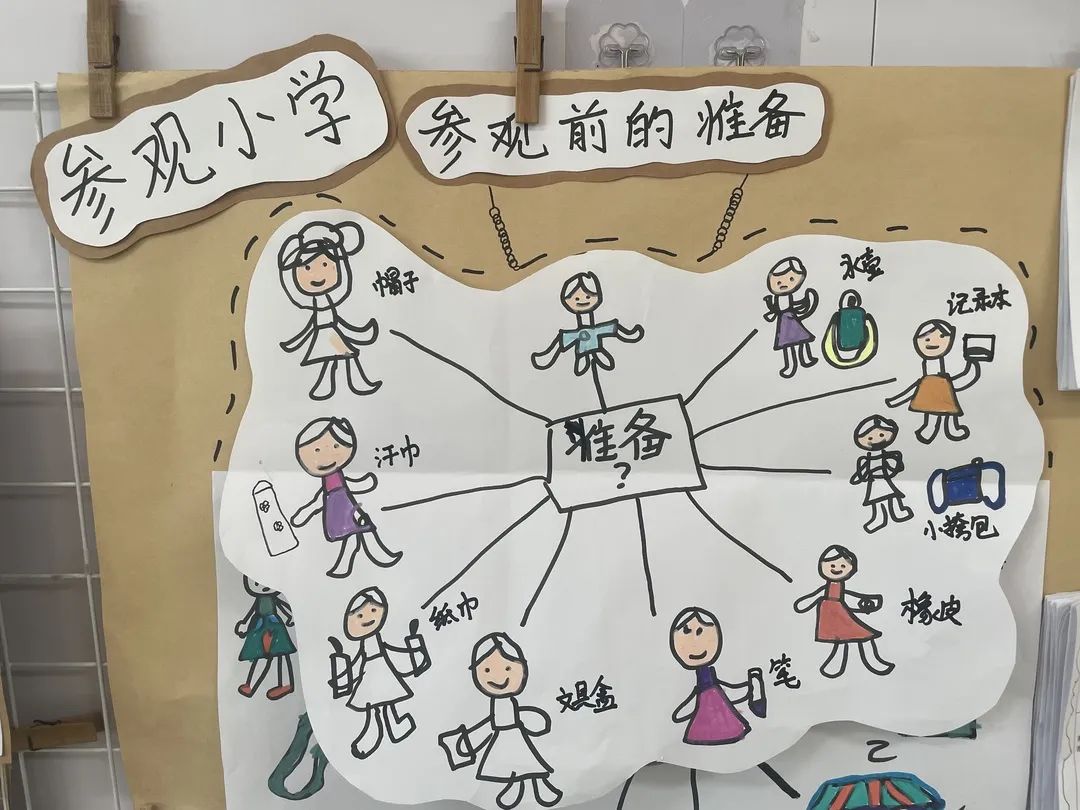 参观小学
参观前的准备
帽子
水壶
记录本
汗巾
准备
?
小挎包
纸巾
橡皮
文具盒
笔
2